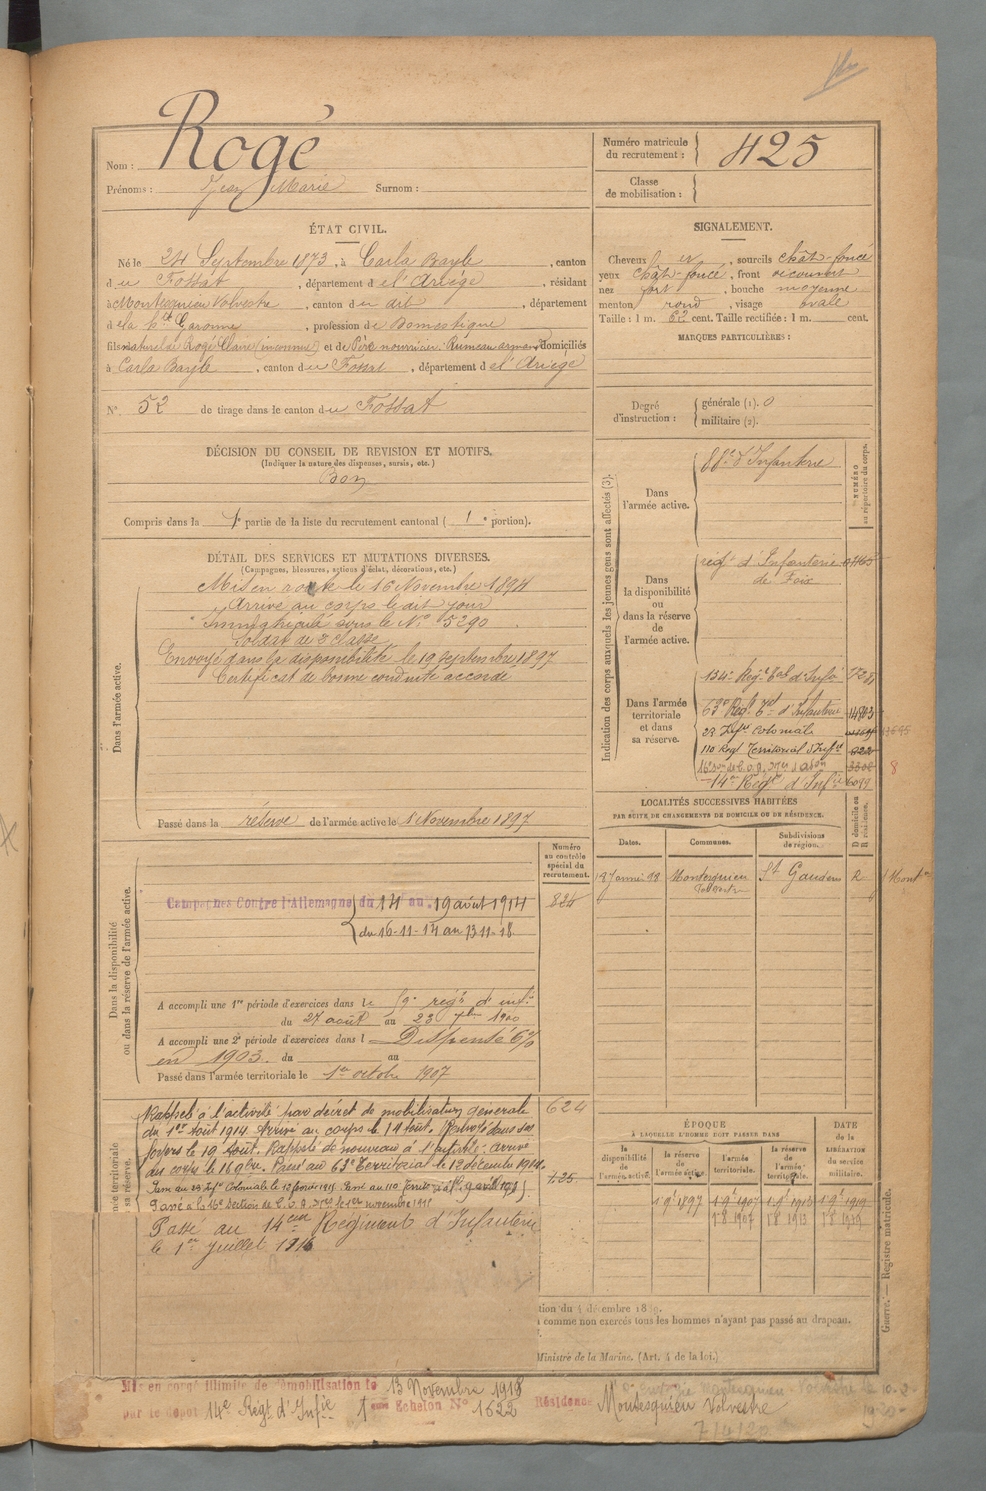 Nom : Rogé
Prénoms : Jean Marie Surnom :
Numéro matricule du recrutement : 425
Classe de mobilisation :
ÉTAT CIVIL.
Né le 24 Septembre 1873, à Carla Bayle, canton
du Fossat, département de l'Ariège, résidant
à Montesquieu Volvestre, canton du dit, département
de la Hte Garonne, profession de Domestique
fils naturel de Rogé Claire (inconnue) et de Père nourricier Rumeau domiciliés
à Carla Bayle, canton du Fossat, département de l'Ariège
N° 52 de tirage dans le canton du Fossat
SIGNALEMENT.
Cheveux, sourcils chât-foncé
yeux chât-foncé, front découvert
nez fort, bouche moyenne
menton rond, visage ovale
Taille : 1 m. 62 cent. Taille rectifiée : 1 m. cent.
MARQUES PARTICULIÈRES :
Degré d'instruction : générale (1). 0
militaire (2).
DÉCISION DU CONSEIL DE REVISION ET MOTIFS.
(Indiquer la nature des dispenses, sursis, etc.)
Bon
Compris dans la 1e partie de la liste du recrutement cantonal ( 1e portion).
DÉTAIL DES SERVICES ET MUTATIONS DIVERSES.
(Campagnes, blessures, actions d'éclat, décorations, etc.)
Dans l'armée active.
Mis en route le 16 Novembre 1894
Arrivé au corps le dit jour
Immatriculé sous le N° 5290
Soldat de 2e classe
Envoyé dans la disponibilité le 19 septembre 1897
Certificat de bonne conduite accordé
Passé dans la réserve de l'armée active le 1 Novembre 1897
Indication des corps auxquels les jeunes gens sont affectés (3).
NUMÉRO au répertoire du corps.
Dans l'armée active.
88e d'Infanterie
Dans la disponibilité ou dans la réserve de l'armée active.
régt d'Infanterie
de Foix
Dans l'armée territoriale et dans sa réserve.
134e Régt Terl d'Infie
63e Régt Terl d'Infanterie 14803
23 Infie Coloniale
110 Regt Territorial d'Infie
14e Régt d'Infie
8
LOCALITÉS SUCCESSIVES HABITÉES
PAR SUITE DE CHANGEMENTS DE DOMICILE OU DE RÉSIDENCE.
Dates. Communes. Subdivisions de région. D domicile ou R résidence.
Montesquieu Volvestre St Gaudens R
Dans la disponibilité ou dans la réserve de l'armée active.
Numéro au contrôle spécial du recrutement.
884
Campagnes Contre l'Allemagne du 14 au 19 août 1914
du 16-11-14 au 13-11-18
A accompli une 1re période d'exercices dans le 59e régt d'infie
du 27 août au 23 7bre 1900
A accompli une 2e période d'exercices dans l Dispensé 6%
en 1903. du au
Passé dans l'armée territoriale le 1er octobre 1907
624
425
Rappelé à l'activité par décret de mobilisation générale
du 1er Août 1914. Arrivé au corps le 14 août. Renvoyé dans ses
foyers le 19 Août. Rappelé de nouveau à l'activité. Arrivé
au corps le 16 9bre. Passé au 63e Territorial le 12 décembre 1914.
Passé au 23 Infie Coloniale le 12 février 1915. Passé au 110 Territorial d'Infie
Passé à la 16e Section de C.O.A. le 1er novembre 1915
Passé au 14eme Régiment d'Infanterie
le 1er juillet 1916
ÉPOQUE
À LAQUELLE L'HOMME DOIT PASSER DANS
la disponibilité de l'armée active.
la réserve de l'armée active.
l'armée territoriale.
la réserve de l'armée territoriale.
DATE de la LIBÉRATION du service militaire.
1 9e 1897 1 9e 1907 1 9e 1913 1 9e 1919
1 8 1907 1 8 1913 1 8 1919
comme non exercés tous les hommes n'ayant pas passé au drapeau.
Ministre de la Marine. (Art. 4 de la loi.)
Guerre. — Registre matricule.
Mis en congé illimité de démobilisation le 13 Novembre 1918
par le dépôt 14e Régt d'Infie 1eme Echelon N° 1622 Résidence Montesquieu Volvestre